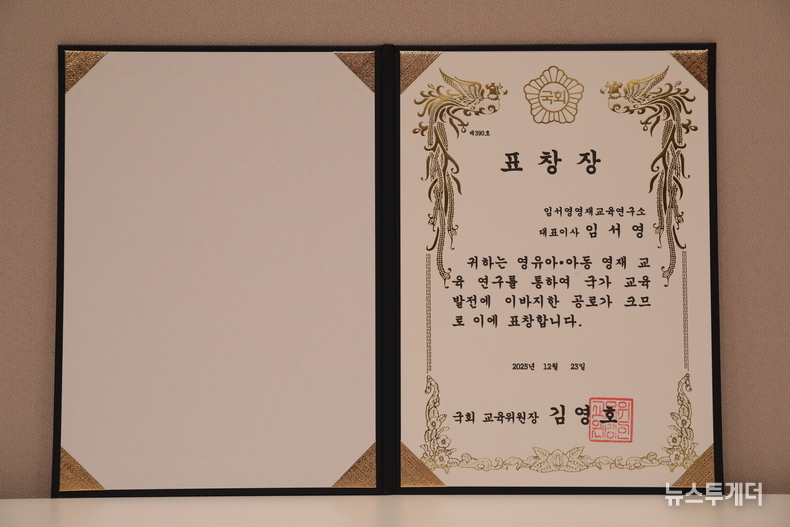 국회
제390호
표 창 장
임서영영재교육연구소
대표이사 임 서 영
귀하는 영유아•아동 영재 교
육 연구를 통하여 국가 교육
발전에 이바지한 공로가 크므
로 이에 표창합니다.
2025년 12월 23일
국회 교육위원장 김 영 호
뉴스투게더